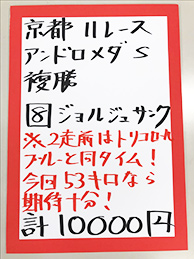 京都 11レース
アンドロメダS
複勝
8 ジョルジュサンク
※2走前はトリコロール
ブルーと同タイム!
今回53キロなら
期待十分!
計10000円